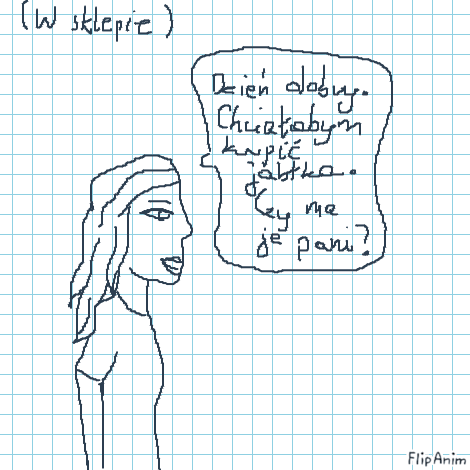 (W sklepie)
Dzień dobry.
Chciałabym
kupić
jabłka.
Czy ma
je pani?
FlipAnim